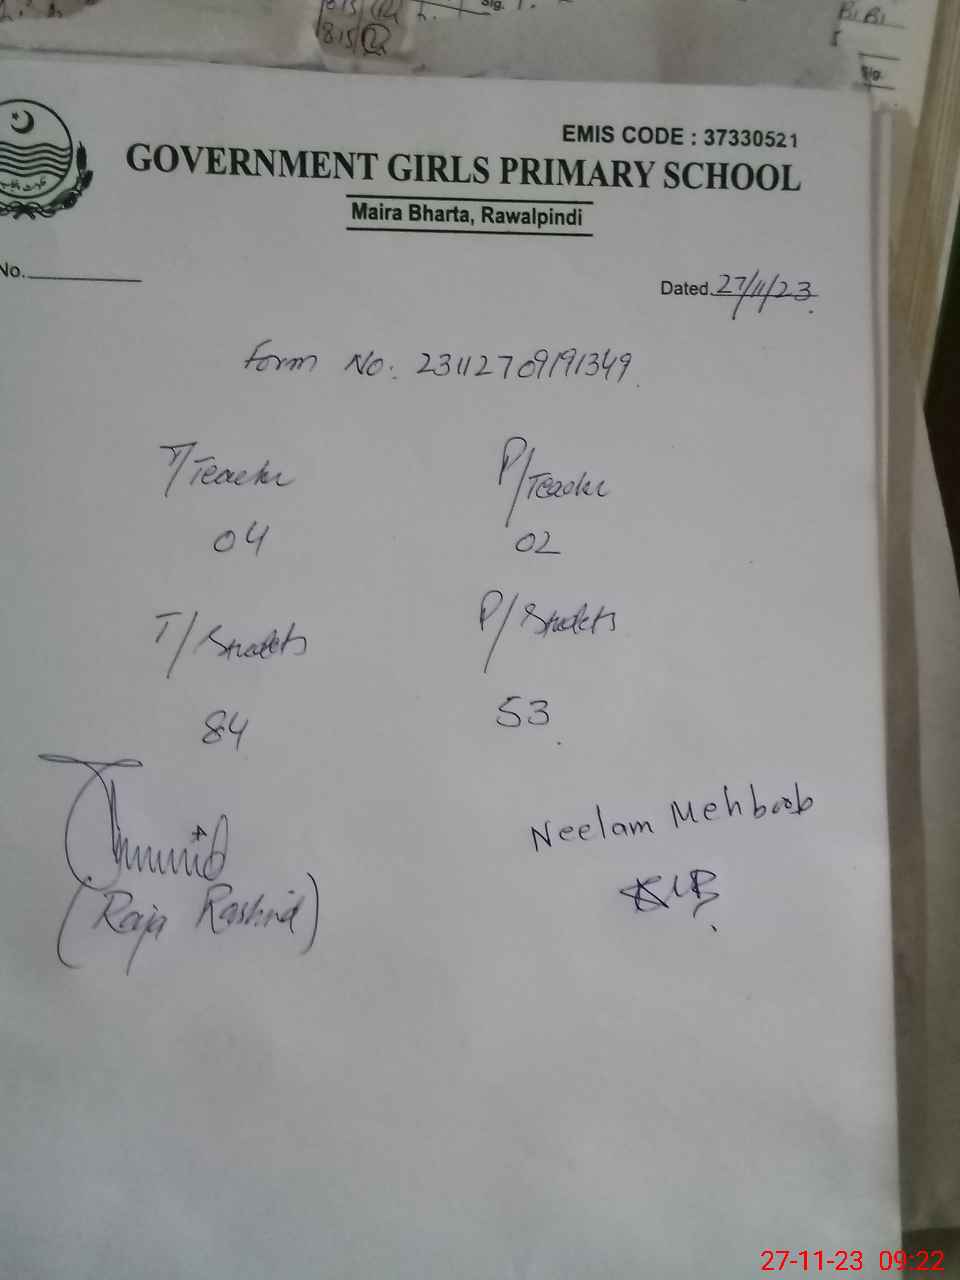 Sig.
815
Bi Bi
Sig.
EMIS CODE : 37330521
GOVERNMENT GIRLS PRIMARY SCHOOL
Maira Bharta, Rawalpindi
No.
Dated. 27/11/23
Form No: 23112709191349
T/Teacher P/Teacher
04 02
T/Students P/Students
84 53
Neelam Mehboob
(Raja Rashid)
27-11-23 09:22